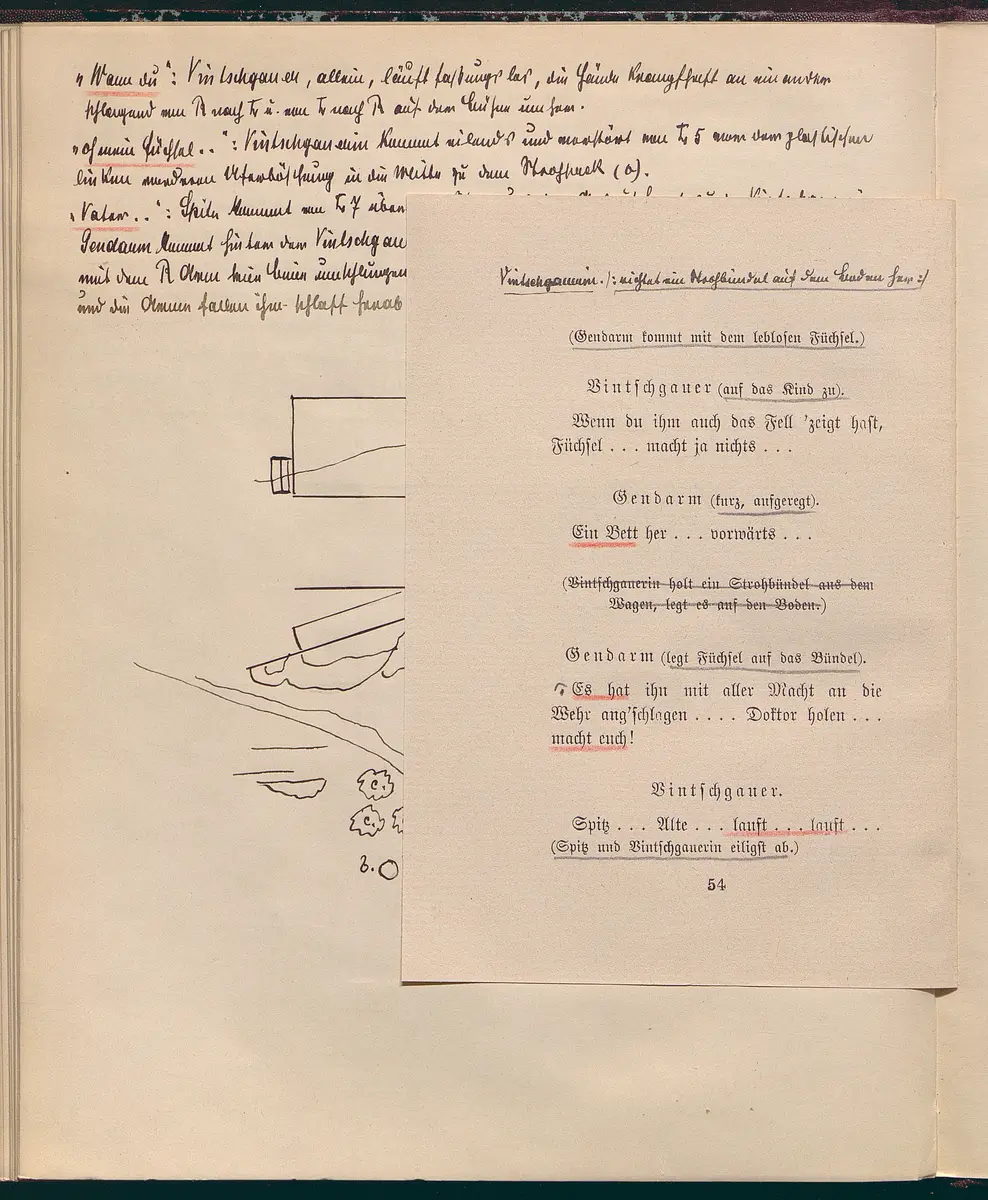 „Wann du“: Vintschgauer, allein, läuft fassungslos, die Hände krampfhaft an einander
schlagend von R nach L u. von L nach R auf der Bühne umher.
„Oh mein Füchsel..“: Vintschgauerin kommt eilends und verstört von L 5 von der plastischen
linken vorderen Uferböschung in die Mitte zu dem Strohsack (a).
„Vater..“: Spitz kommt von L 7 über
Gendarm kommt hinter dem Vintschgau
mit dem R Arm sein Beine umschlungen
und die Arme fallen ihm schlaff herab
Vintschgauerin. /: richtet ein Strohbündel auf dem Boden her :/
(Gendarm kommt mit dem leblosen Füchsel.)
Vintschgauer (auf das Kind zu).
Wenn du ihm auch das Fell 'zeigt hast,
Füchsel . . . macht ja nichts . . .
Gendarm (kurz, aufgeregt).
Ein Bett her . . . vorwärts . . .
(Vintschgauerin holt ein Strohbündel aus dem
Wagen, legt es auf den Boden.)
Gendarm (legt Füchsel auf das Bündel).
Es hat ihn mit aller Macht an die
Wehr ang'schlagen . . . . Doktor holen . . .
macht euch!
Vintschgauer.
Spitz . . . Alte . . . lauft . . . lauft . . .
(Spitz und Vintschgauerin eiligst ab.)
54
c.
c.
3.